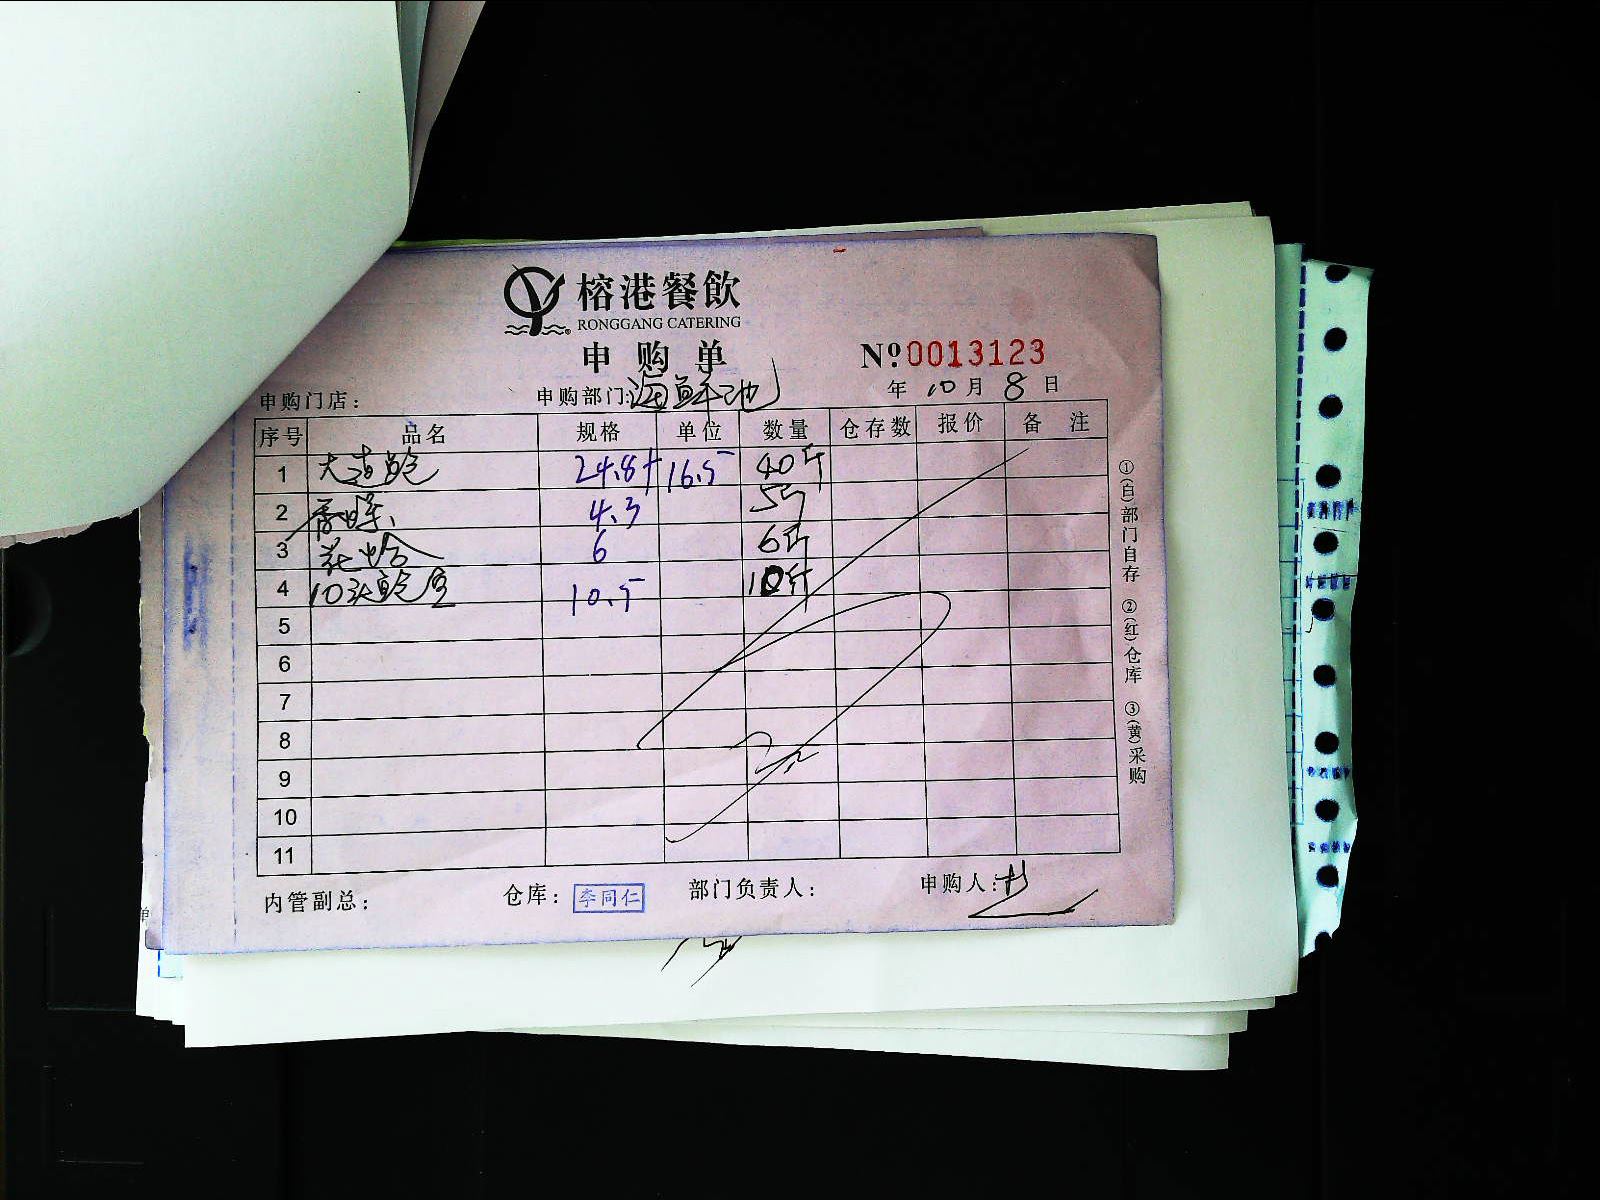 榕港餐飲
RONGGANG CATERING
申购单
№0013123
申购门店： 申购部门:海鲜池 年10月8日
序号 品名 规格 单位 数量 仓存数 报价 备注
1 24.8+ 16.5 40斤
2 4.3 5斤
3 花蛤 6 6斤
4 10头鲍鱼 10.5 10斤
5
6
7
8
9
10
11
①(白)部门自存 ②(红)仓库 ③(黄)采购
内管副总： 仓库：李同仁 部门负责人： 申购人:
单